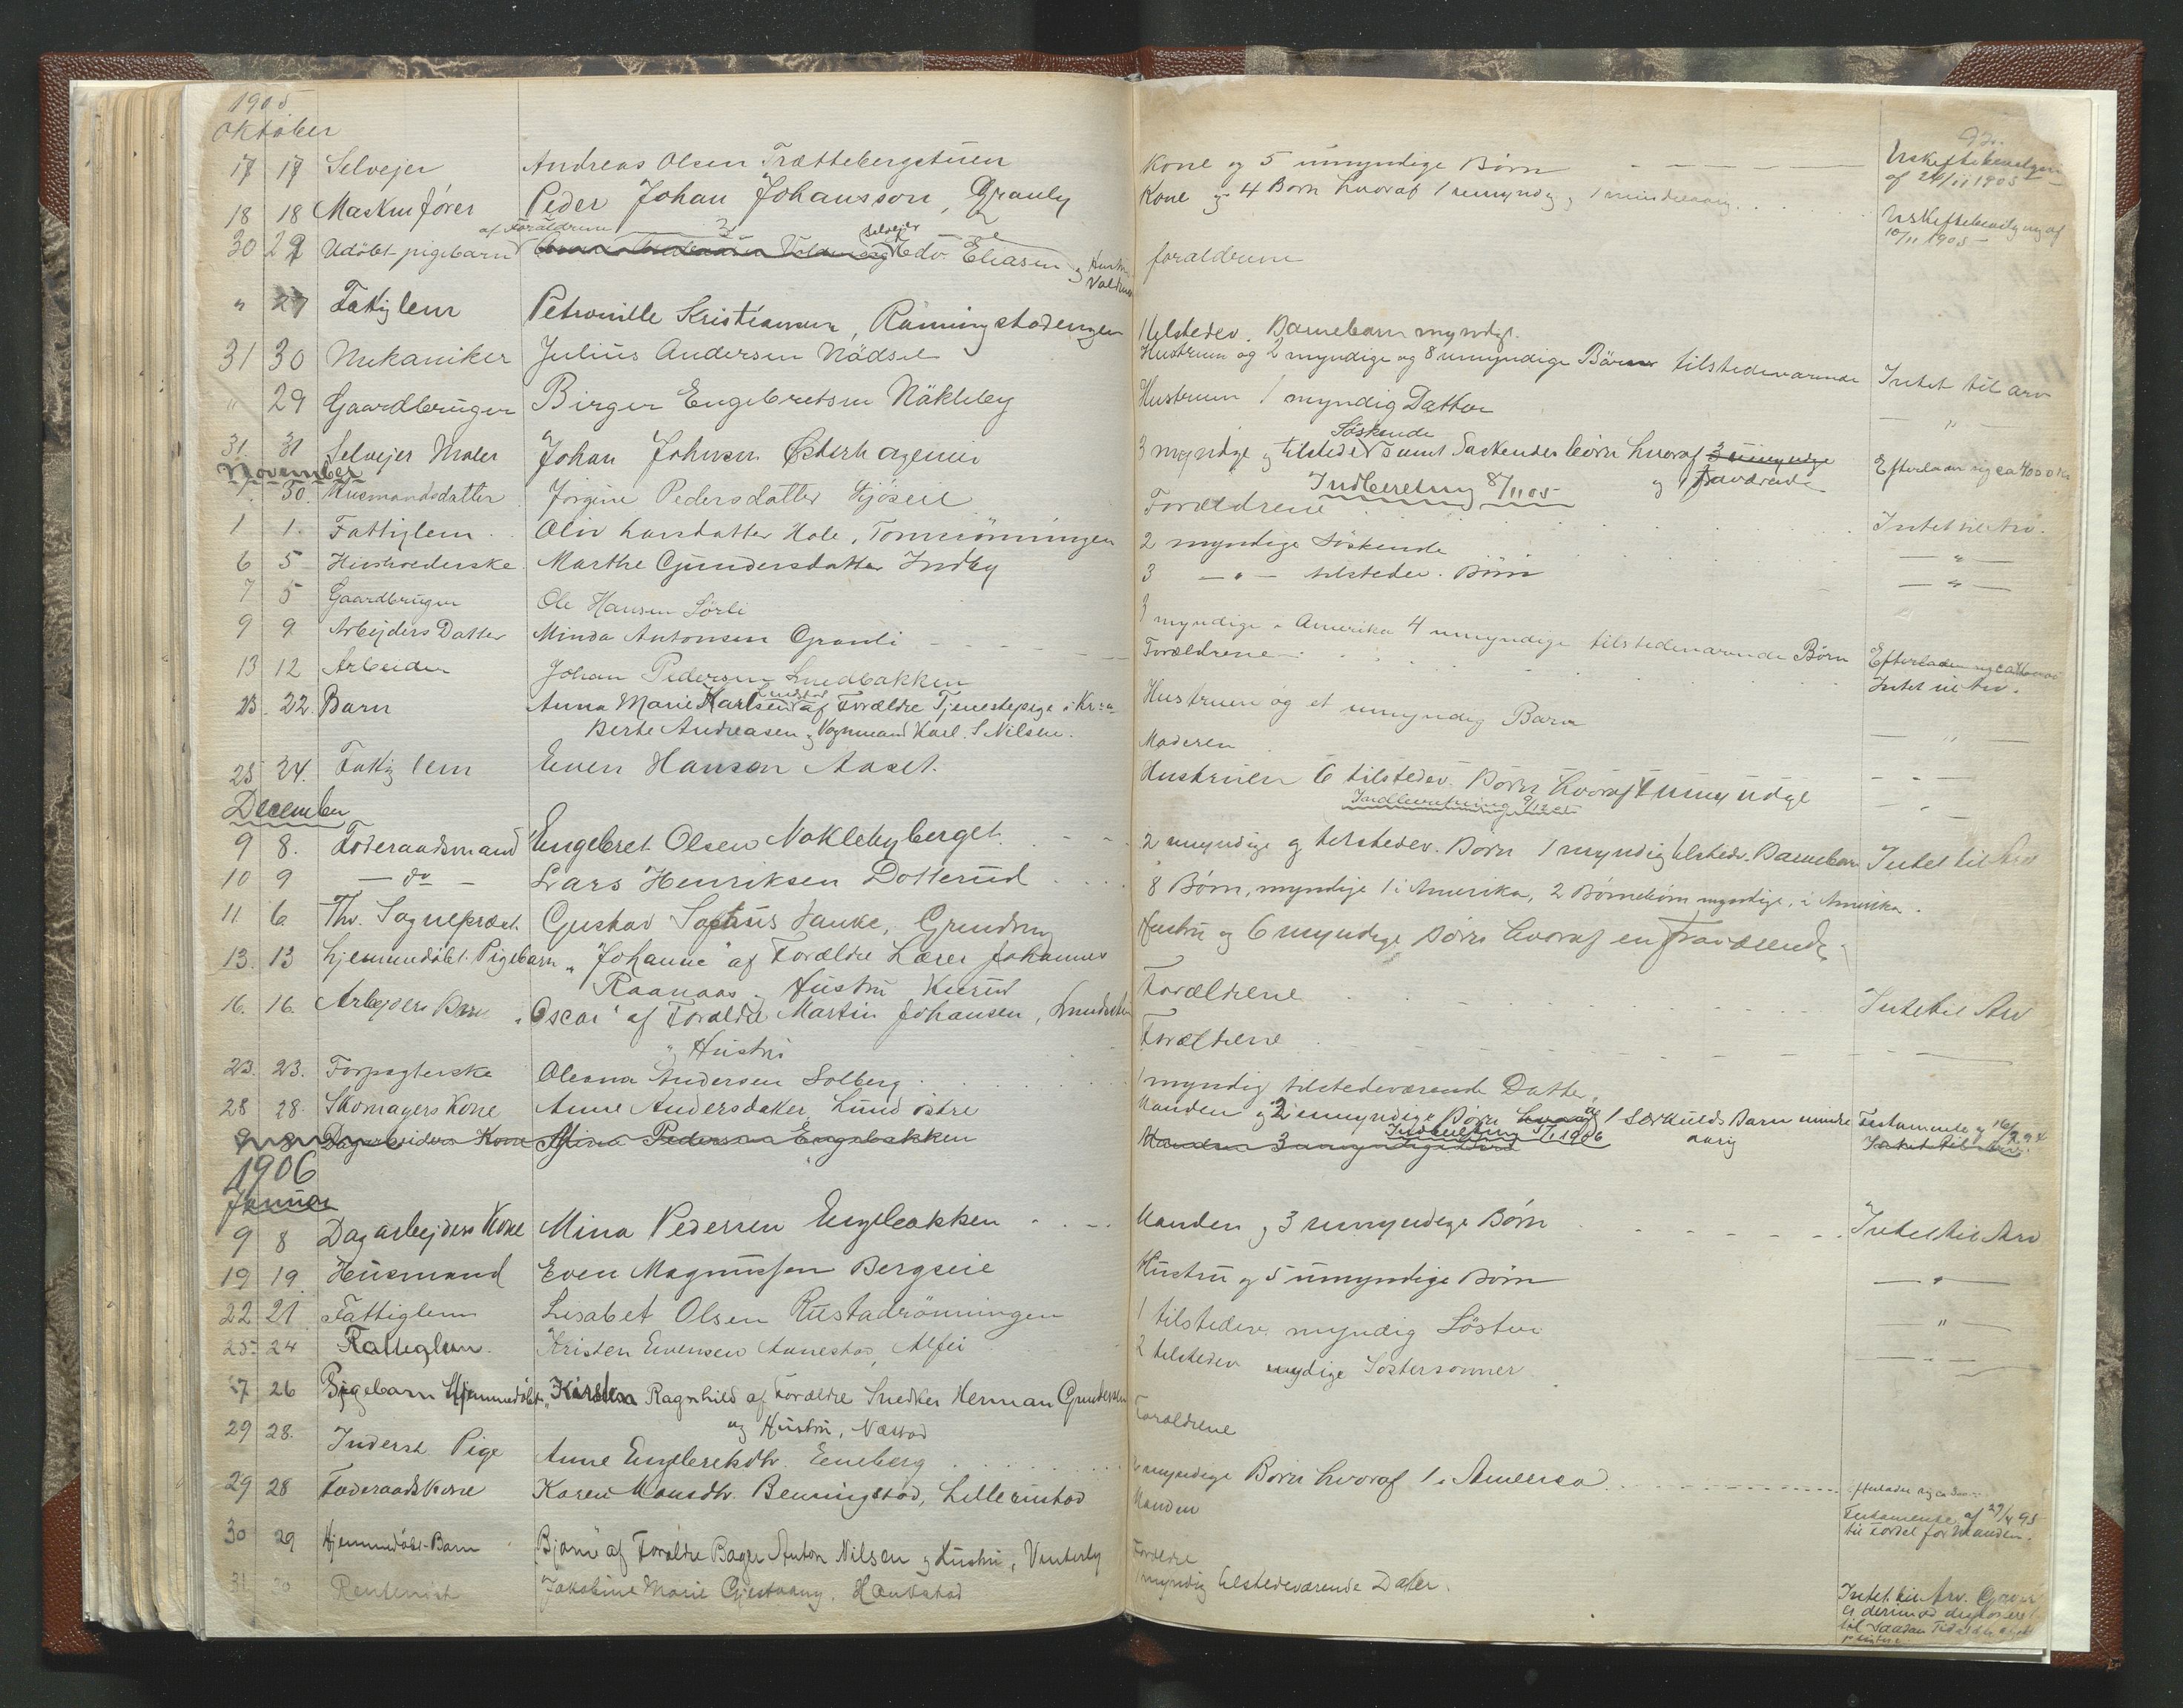 1905
Oktober
17 17 Selvejer Andreas Olsen Trættebergstuen
18 18 Maskinfører Peder Johan Johansson, Granly
af Forældrene Selvejer
30 29 Udöbt pigebarn Edv. Eliasen og Hustru
" 27 Fattiglem Petronille Kristiansen, Rönningstadengen
31 30 Mekaniker Julius Andersen Nádset
" 29 Gaardbruger Birger Engebretsen Näkleby
31 31 Selvejer Maler Johan Johnsen Østerhagenei
November
30. Husmandsdatter Jörgine Pedersdatter
1 1. Fattiglem Oliv Larsdatter Hole, Tomrönningen
6 5 Husholderske Marthe Gundersdatter Indby
7 5 Gaardbruger Ole Hansen Sörli
9 9 Arbejders Datter Minda Antonsen Granli
13 12 Arbeider Johan Pedersen Lundbakken
23. 22. Barn Anna Marie Karlsen af Forældre Tjenestepige i Kr:a
Berte Andreasen og Vognmand Karl. S. Nilsen.
25 24. Fattiglem Even Hansen Aaset.
December
9 8. Föderaadsmand Engebret Olsen Noklebyberget.
10 9 — do — Lars Henriksen Dotterud
11 6. Fhv. Sognepræst Gustav Sophus Hauke, Grindng
13. 13 Hjemmedöbt Pigebarn "Johanne" af Forældre Lærer Johannes
Raanaas og Hustru
16. 16. Arbejders Barn "Oscar" af Forældre Martin Johansen,
og Hustru
23. 23. Forpagterske Oleana Andersen Solberg
28 28. Skomagers Kone Anne Andersdatter Lund östre
9 8 Dagarbeiders Kone Mina Pedersen Engebakken
1906
Januar
9 8 Dagarbejders Kone Mina Pedersen Engebakken
19 19. Husmand Even Magnussen Bergseie
22 21 Fattiglem Lisabet Olsen Rustadrönningen
25. 24 Fattiglem. Kristen Evensen Annestad, Alfei
27 26 Pigebarn Hjemmedöbt "Kirsten Ragnhild af Forældre Snedker Herman Gundersen
og Hustru, Næstad
29 28. Inderst Pige Anne Engebretsdtr. Eneberg
29 28 Föderaadskone Karen Monsdtr. Benningstad, Lillerustad
30 29 Hjemmedöbt Barn "Bjarne" af Forældre Bager Anton Nilsen og Hustru, Vinterby
31 30 Rentenist Jakobine Marie Gjestvang, Haukstad
Kone og 5 umyndige Börn
Uskiftebevilgning
af 24/11 1905
Kone og 4 Børn hvoraf 1 umyndig, 1 mindreaarig.
Uskiftebevilgning af
10/11 1905
forældrene
1 tilstedev. Barnebarn myndigt.
Hustruen og 2 myndige og 8 umyndige Börn tilstedeværende Intet til arv
Hustruen 1 myndig Datter "
Söskende
3 myndige og tilstedev samt Söskendes börn hvoraf 3 umyndige
og fraværende
Efterlader sig ca 4000 Kr
Indberetning 8/11 05
Forældrene Intet til Arv.
2 myndige Söskende — " —
3 — " — tilstedev. Börn — " —
3 myndige i Amerika 4 umyndige tilstedeværende Börn
Forældrene Intet til Arv.
Hustruen og et umyndig Barn — " —
Moderen — " —
Hustruen 6 tilstedev. Börn hvoraf 4 umyndige
Indberetning 9/12 05
2 myndige og tilstedev. Börn 1 myndig tilstedv. Barnebarn Intet til Arv
8 Börn, myndige 1 i Amerika, 2 Börnebörn myndige, i Amerika.
Hustru og 6 myndige Börn hvoraf en Fraværende
Forældrene Intet til Arv
Forældrene
1 myndig tilstedeværende Datter,
Manden og 2 umyndige Börn hvoraf og 1 Særkulds Barn mindre
aarig
Indberetning 5/1 1906
Manden 3 umyndige Börn Intet til Arv.
Manden og 3 umyndige Börn Intet til Arv
Hustru og 5 umyndige Börn — " —
1 tilstedev. myndig Söster — " —
2 tilstedev myndige Söstersönner — " —
Forældrene
myndige Börn hvoraf 1 i Amerika
Efterlader sig ca
Manden
Testamente af 29/4 95
til Fordel for Manden.
Forældre
1 myndig tilstedeværende Datter.
Intet til Arv.
er derimod
til